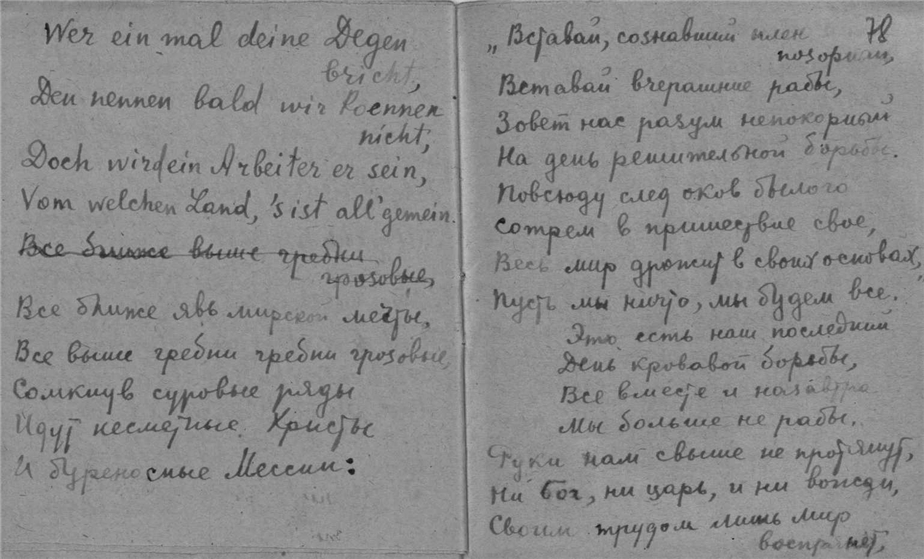 Wer ein mal deine Degen
bricht,
Den nennen bald wir Roennen
nicht,
Doch wirdein Arbeiter er sein,
Vom welchen Land, 's ist all'gemein.
Все ближе выше гребни
грозовые,
Все ближе явь мирской мечты,
Все выше гребни гребни грозовые,
Сомкнув суровые ряды
Идут несметные Христы
И буреносные Мессии:
78
„Вставай, сознавший плен
позорный,
Вставай вчерашние рабы,
Зовет нас разум непокорный
На день решительной борьбы.
Повсюду след оков былого
Сотрем в пришествие свое,
Весь мир дрожит в своих основах,
Пусть мы ничто, мы будем все.
Это есть наш последний
День кровавой борьбы,
Все вместе и назавтра
Мы больше не рабы.
Руки нам свыше не протянут,
Ни бог, ни царь, и ни вожди,
Своим трудом лишь мир
воспрянет,